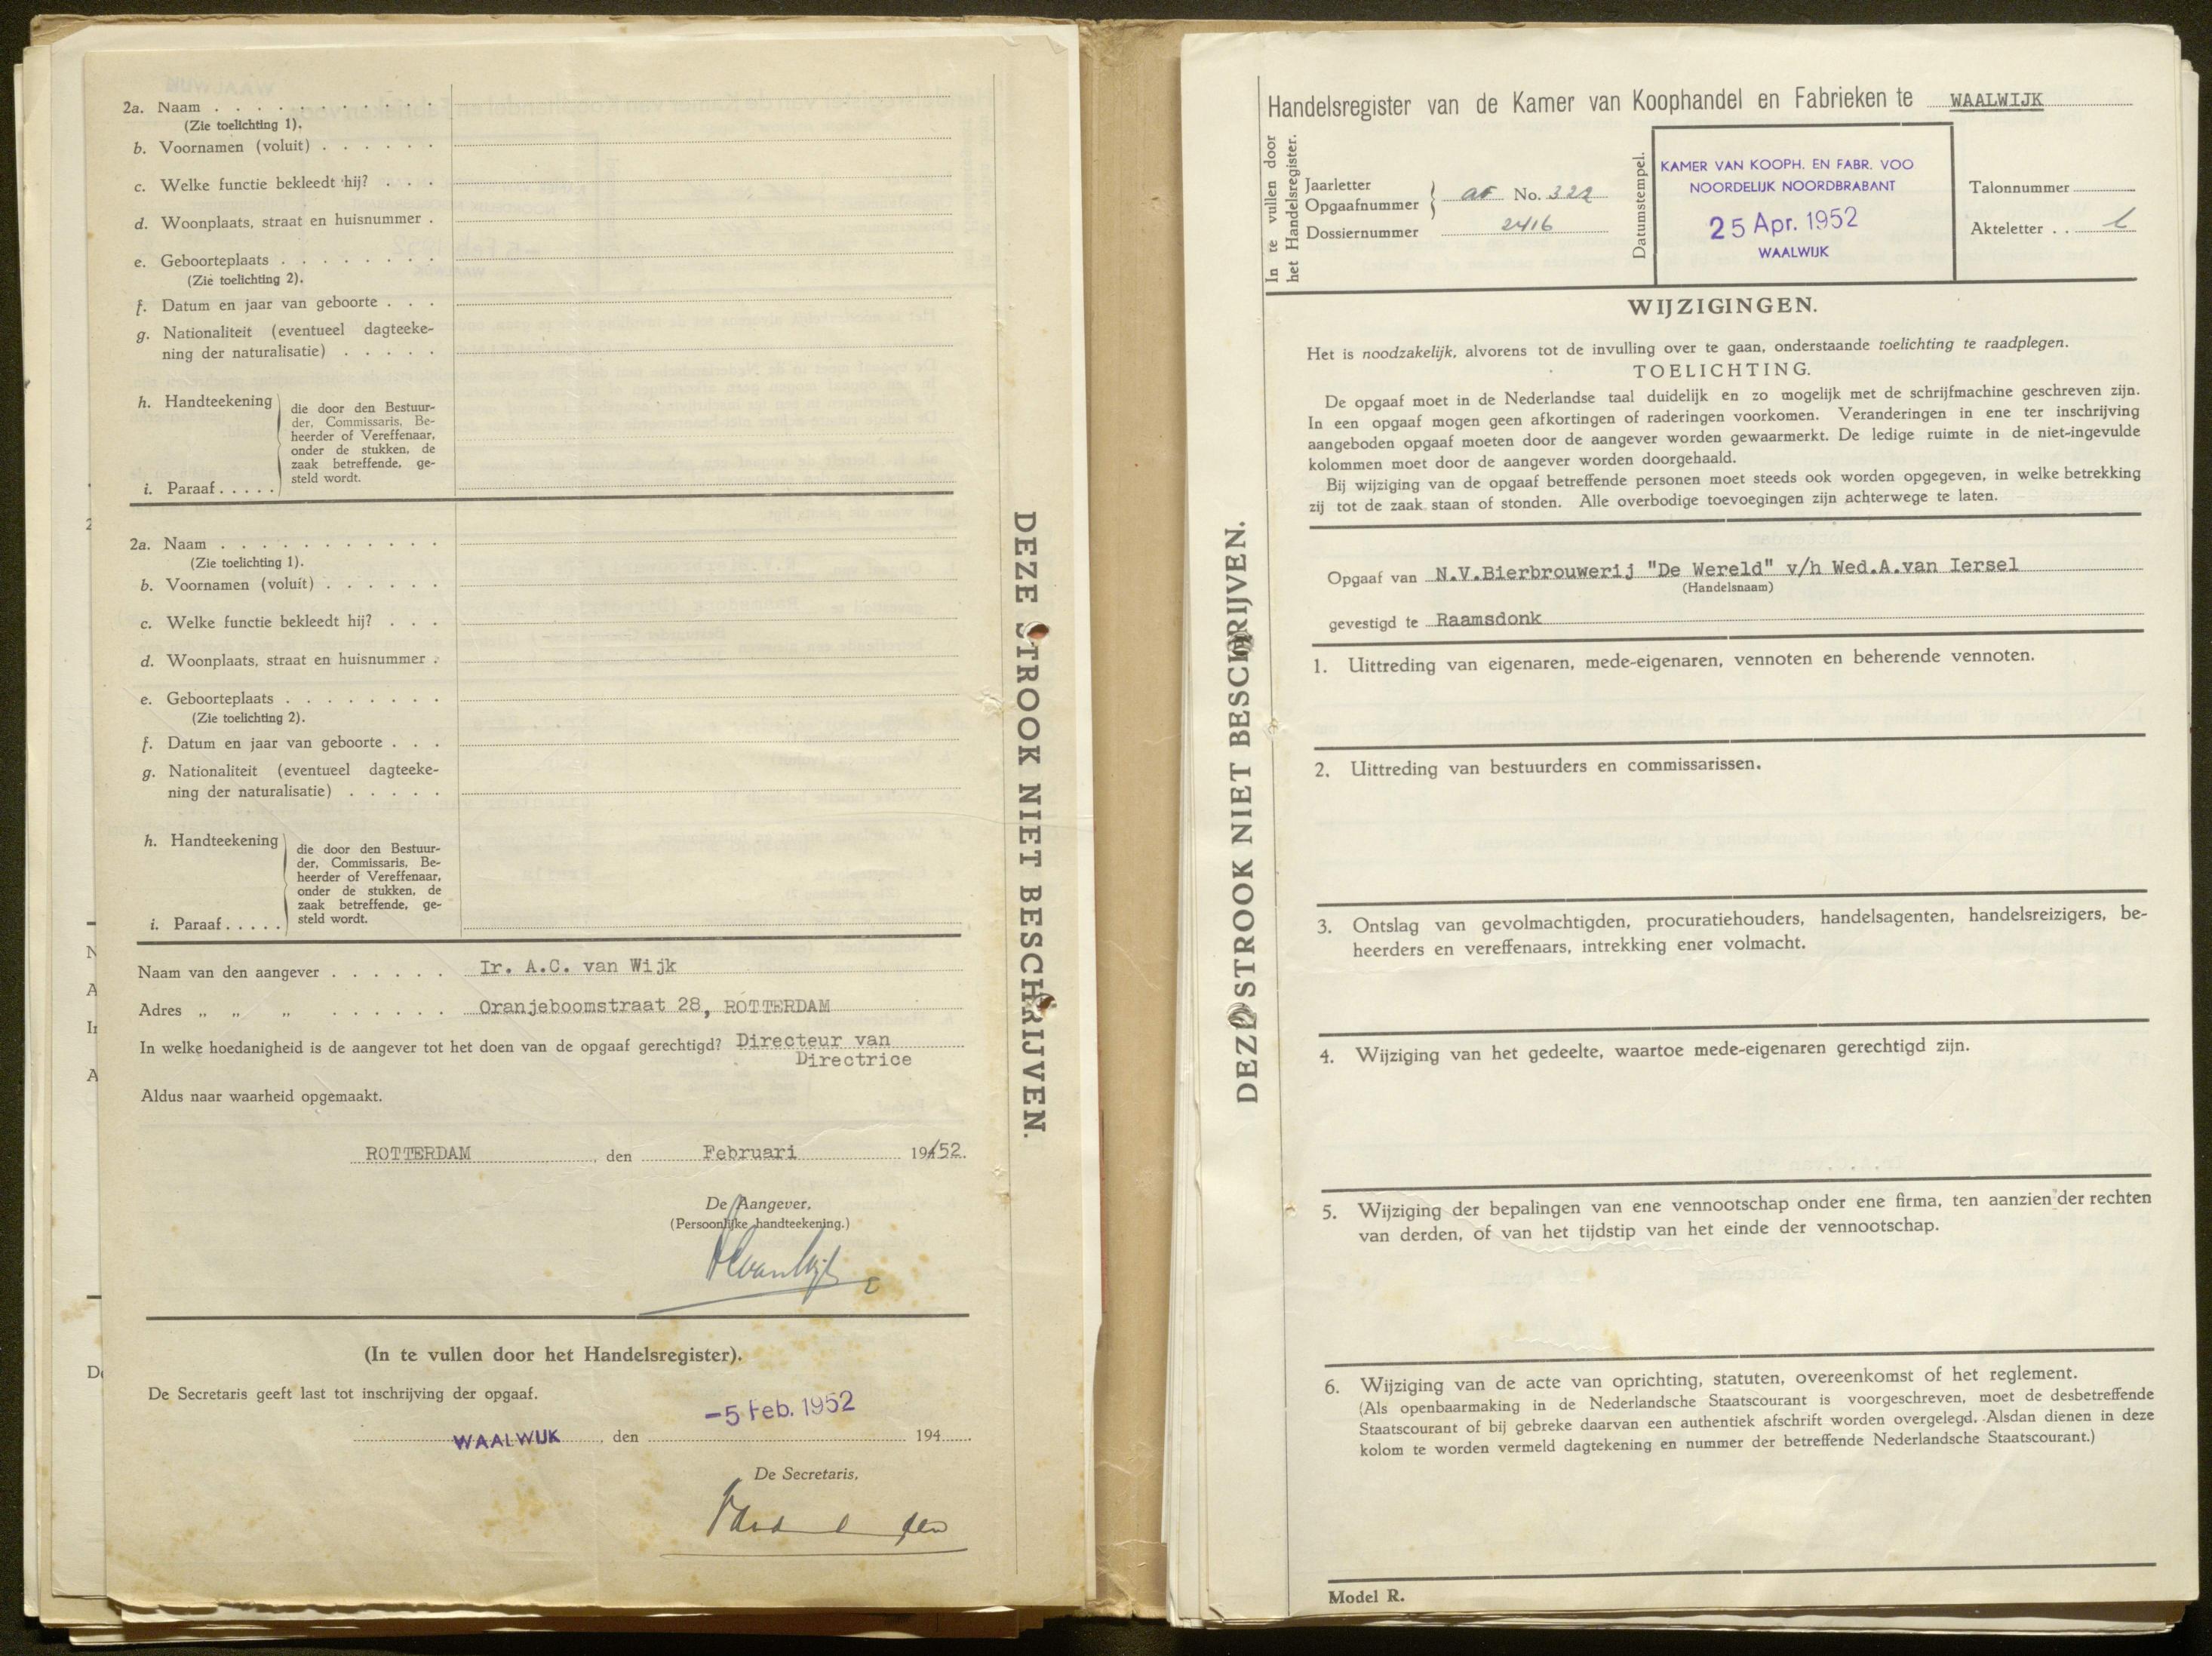 2a. Naam . . . . . . . . . . .
(Zie toelichting 1).
b. Voornamen (voluit) . . . . . .
c. Welke functie bekleedt hij? . . .
d. Woonplaats, straat en huisnummer .
e. Geboorteplaats . . . . . . . .
(Zie toelichting 2).
f. Datum en jaar van geboorte . . .
g. Nationaliteit (eventueel dagteeke-
ning der naturalisatie) . . . . .
h. Handteekening
die door den Bestuur-
der, Commissaris, Be-
heerder of Vereffenaar,
onder de stukken, de
zaak betreffende, ge-
steld wordt.
i. Paraaf . . . . .
2a. Naam . . . . . . . . . . .
(Zie toelichting 1).
b. Voornamen (voluit) . . . . . .
c. Welke functie bekleedt hij? . . .
d. Woonplaats, straat en huisnummer .
e. Geboorteplaats . . . . . . . .
(Zie toelichting 2).
f. Datum en jaar van geboorte . . .
g. Nationaliteit (eventueel dagteeke-
ning der naturalisatie) . . . . .
h. Handteekening
die door den Bestuur-
der, Commissaris, Be-
heerder of Vereffenaar,
onder de stukken, de
zaak betreffende, ge-
steld wordt.
i. Paraaf . . . . .
Naam van den aangever . . . . . . Ir. A.C. van Wijk
Adres „ „ „ . . . . . . Oranjeboomstraat 28, ROTTERDAM
In welke hoedanigheid is de aangever tot het doen van de opgaaf gerechtigd? Directeur van
Directrice
Aldus naar waarheid opgemaakt.
ROTTERDAM, den Februari 19452.
De Aangever,
(Persoonlijke handteekening.)
ACvanWijk
(In te vullen door het Handelsregister).
De Secretaris geeft last tot inschrijving der opgaaf.
WAALWIJK, den -5 Feb. 1952 194
De Secretaris,
DEZE STROOK NIET BESCHRIJVEN.
DEZE STROOK NIET BESCHRIJVEN.
Handelsregister van de Kamer van Koophandel en Fabrieken te WAALWIJK
In te vullen door
het Handelsregister.
Jaarletter
Opgaafnummer
No. 322
Dossiernummer 2416
Datumstempel.
KAMER VAN KOOPH. EN FABR. VOO
NOORDELIJK NOORDBRABANT
25 Apr. 1952
WAALWIJK
Talonnummer
Akteletter . . l
WIJZIGINGEN.
Het is noodzakelijk, alvorens tot de invulling over te gaan, onderstaande toelichting te raadplegen.
TOELICHTING.
De opgaaf moet in de Nederlandse taal duidelijk en zo mogelijk met de schrijfmachine geschreven zijn.
In een opgaaf mogen geen afkortingen of raderingen voorkomen. Veranderingen in ene ter inschrijving
aangeboden opgaaf moeten door de aangever worden gewaarmerkt. De ledige ruimte in de niet-ingevulde
kolommen moet door de aangever worden doorgehaald.
Bij wijziging van de opgaaf betreffende personen moet steeds ook worden opgegeven, in welke betrekking
zij tot de zaak staan of stonden. Alle overbodige toevoegingen zijn achterwege te laten.
Opgaaf van N.V.Bierbrouwerij "De Wereld" v/h Wed.A.van Iersel
(Handelsnaam)
gevestigd te Raamsdonk
1. Uittreding van eigenaren, mede-eigenaren, vennoten en beherende vennoten.
2. Uittreding van bestuurders en commissarissen.
3. Ontslag van gevolmachtigden, procuratiehouders, handelsagenten, handelsreizigers, be-
heerders en vereffenaars, intrekking ener volmacht.
4. Wijziging van het gedeelte, waartoe mede-eigenaren gerechtigd zijn.
5. Wijziging der bepalingen van ene vennootschap onder ene firma, ten aanzien der rechten
van derden, of van het tijdstip van het einde der vennootschap.
6. Wijziging van de acte van oprichting, statuten, overeenkomst of het reglement.
(Als openbaarmaking in de Nederlandsche Staatscourant is voorgeschreven, moet de desbetreffende
Staatscourant of bij gebreke daarvan een authentiek afschrift worden overgelegd. Alsdan dienen in deze
kolom te worden vermeld dagtekening en nummer der betreffende Nederlandsche Staatscourant.)
Model R.